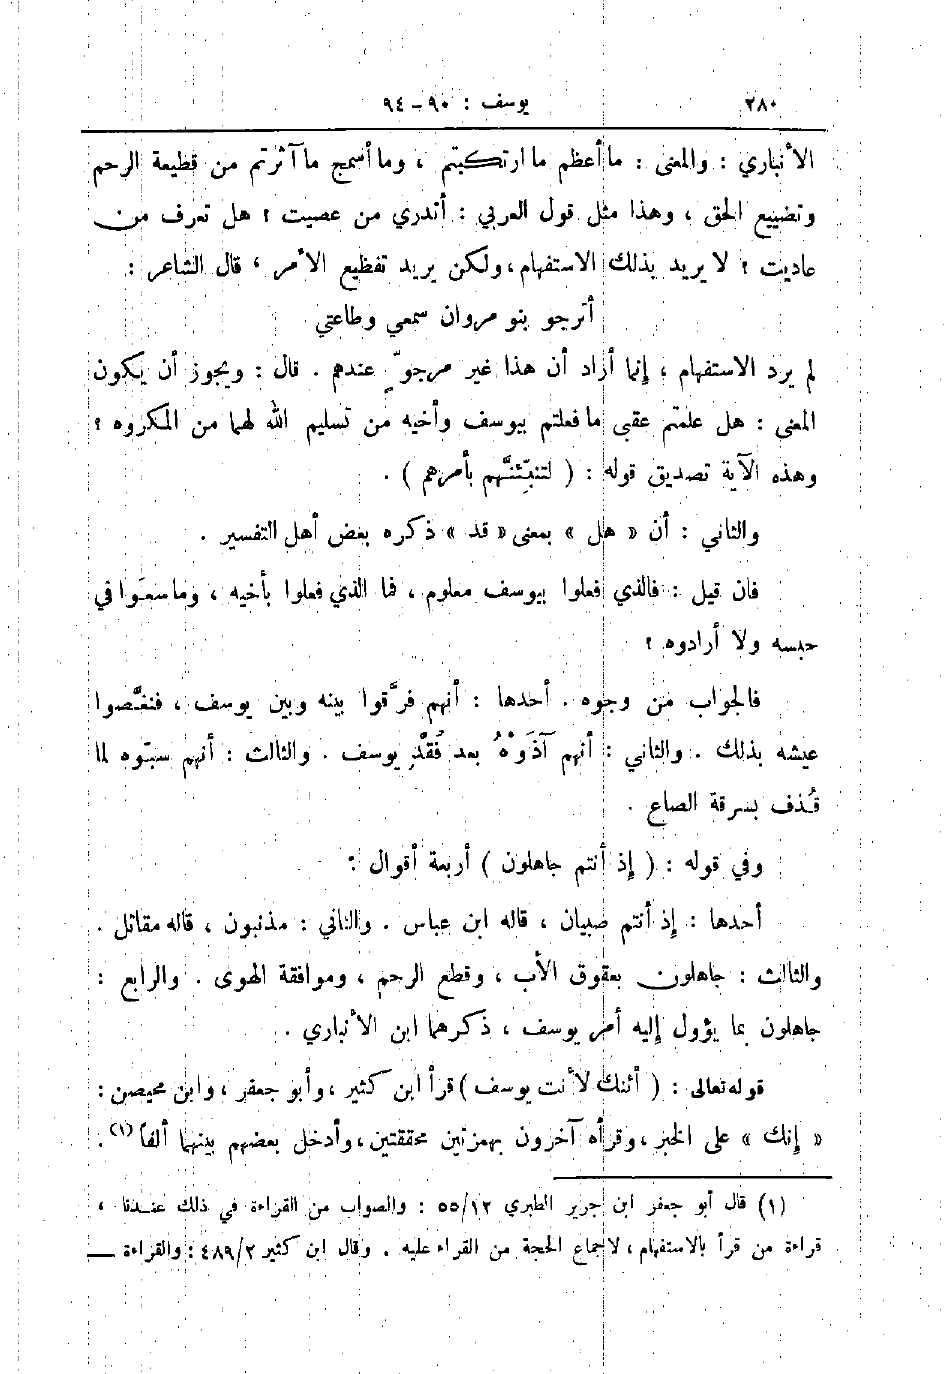 ٢٨٠
يوسف : ٩٠ - ٩٤
الأنباري : والمعنى : ما أعظم ما ارتكبتم ، وما أسمج ما آثرتم من قطيعة الرحم
وتضييع الحق ، وهذا مثل قول العربي : أتدري من عصيت ؟ هل تعرف من
عاديت ؟ لا يريد بذلك الاستفهام ، ولكن يريد تفظيع الأمر ، قال الشاعر :
أترجو بنو مروان سمعي وطاعتي
لم يرد الاستفهام ، إنما أراد أن هذا غير مرجوٍّ عندهم . قال : ويجوز أن يكون
المعنى : هل علمتم عقبى ما فعلتم بيوسف وأخيه من تسليم الله لهما من المكروه ؟
وهذه الآية تصديق قوله : ( لتنبِّئنَّهم بأمرهم ) .
والثاني : أن « هل » بمعنى « قد » ذكره بعض أهل التفسير .
فان قيل : فالذي فعلوا بيوسف معلوم ، فما الذي فعلوا بأخيه ، وما سعَوا في
حبسه ولا أرادوه ؟
فالجواب من وجوه . أحدها : أنهم فرَّقوا بينه وبين يوسف ، فنغَّصوا
عيشه بذلك . والثاني : أنهم آذَوْهُ بعد فُقْدِ يوسف . والثالث : أنهم سبّوه لما
قُذف بسرقة الصاع .
وفي قوله : ( إذ أنتم جاهلون ) أربعة أقوال :
أحدها : إذ أنتم صبيان ، قاله ابن عباس . والثاني : مذنبون ، قاله مقاتل .
والثالث : جاهلون بعقوق الأب ، وقطع الرحم ، وموافقة الهوى . والرابع :
جاهلون بما يؤول إليه أمر يوسف ، ذكرهما ابن الأنباري .
قوله تعالى : ( أئنك لأنت يوسف ) قرأ ابن كثير ، وأبو جعفر ، وابن محيصن :
« إنك » على الخبر ، وقرأه آخرون بهمزتين محققتين ، وأدخل بعضهم بينهما ألفاً (١) .
(١) قال أبو جعفر ابن جرير الطبري ٥٥/١٢ : والصواب من القراءة في ذلك عندنا ،
قراءة من قرأ بالاستفهام ، لاجماع الحجة من القراء عليه . وقال ابن كثير ٤٨٩/٢ : والقراءة —